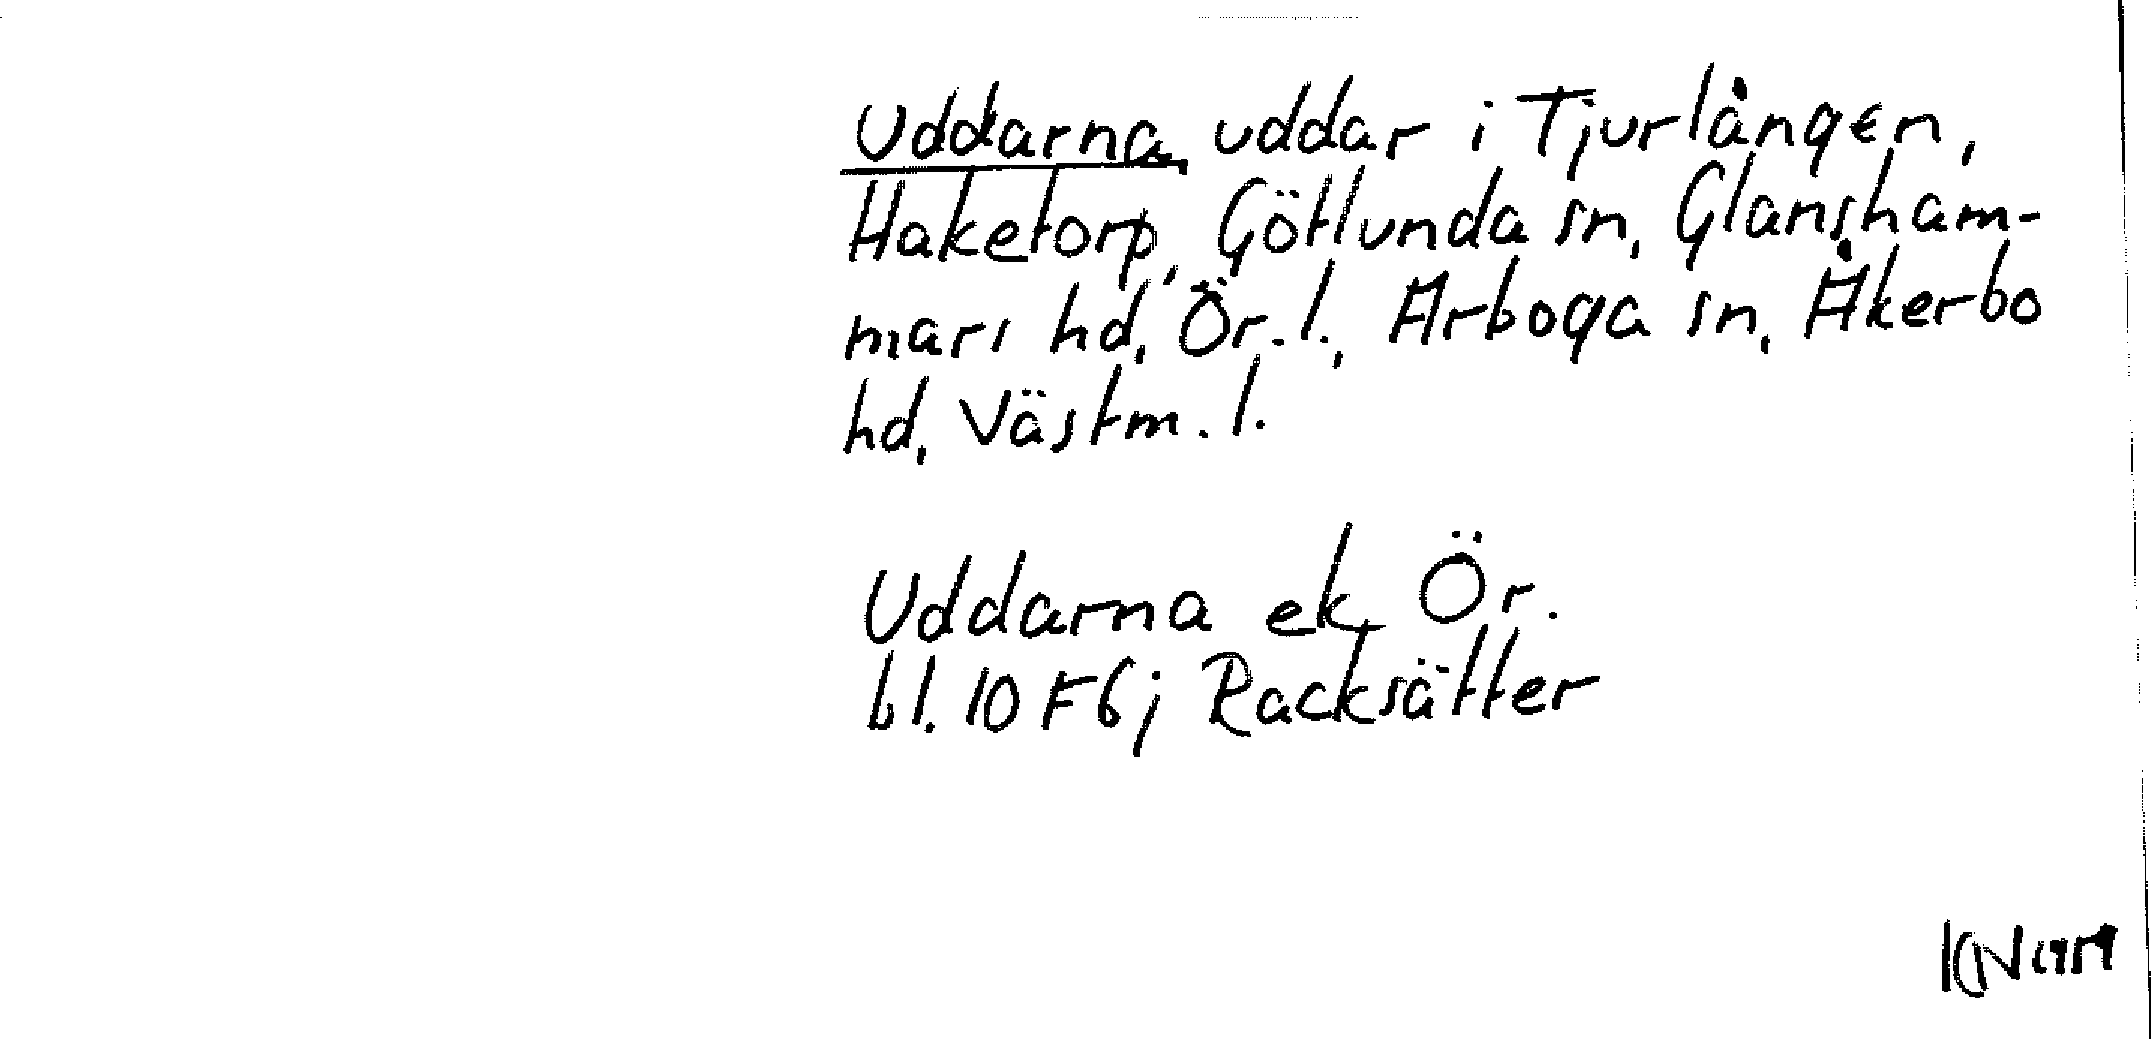 Uddarna, uddar i Tjurlången,
Haketorp, Götlunda sn, Glansham-
mars hd, Ör. l., Arboga sn, Åkerbo
hd, Västm. l.
Uddarna ek, Ör.
bl. 10 F6j Racksätter